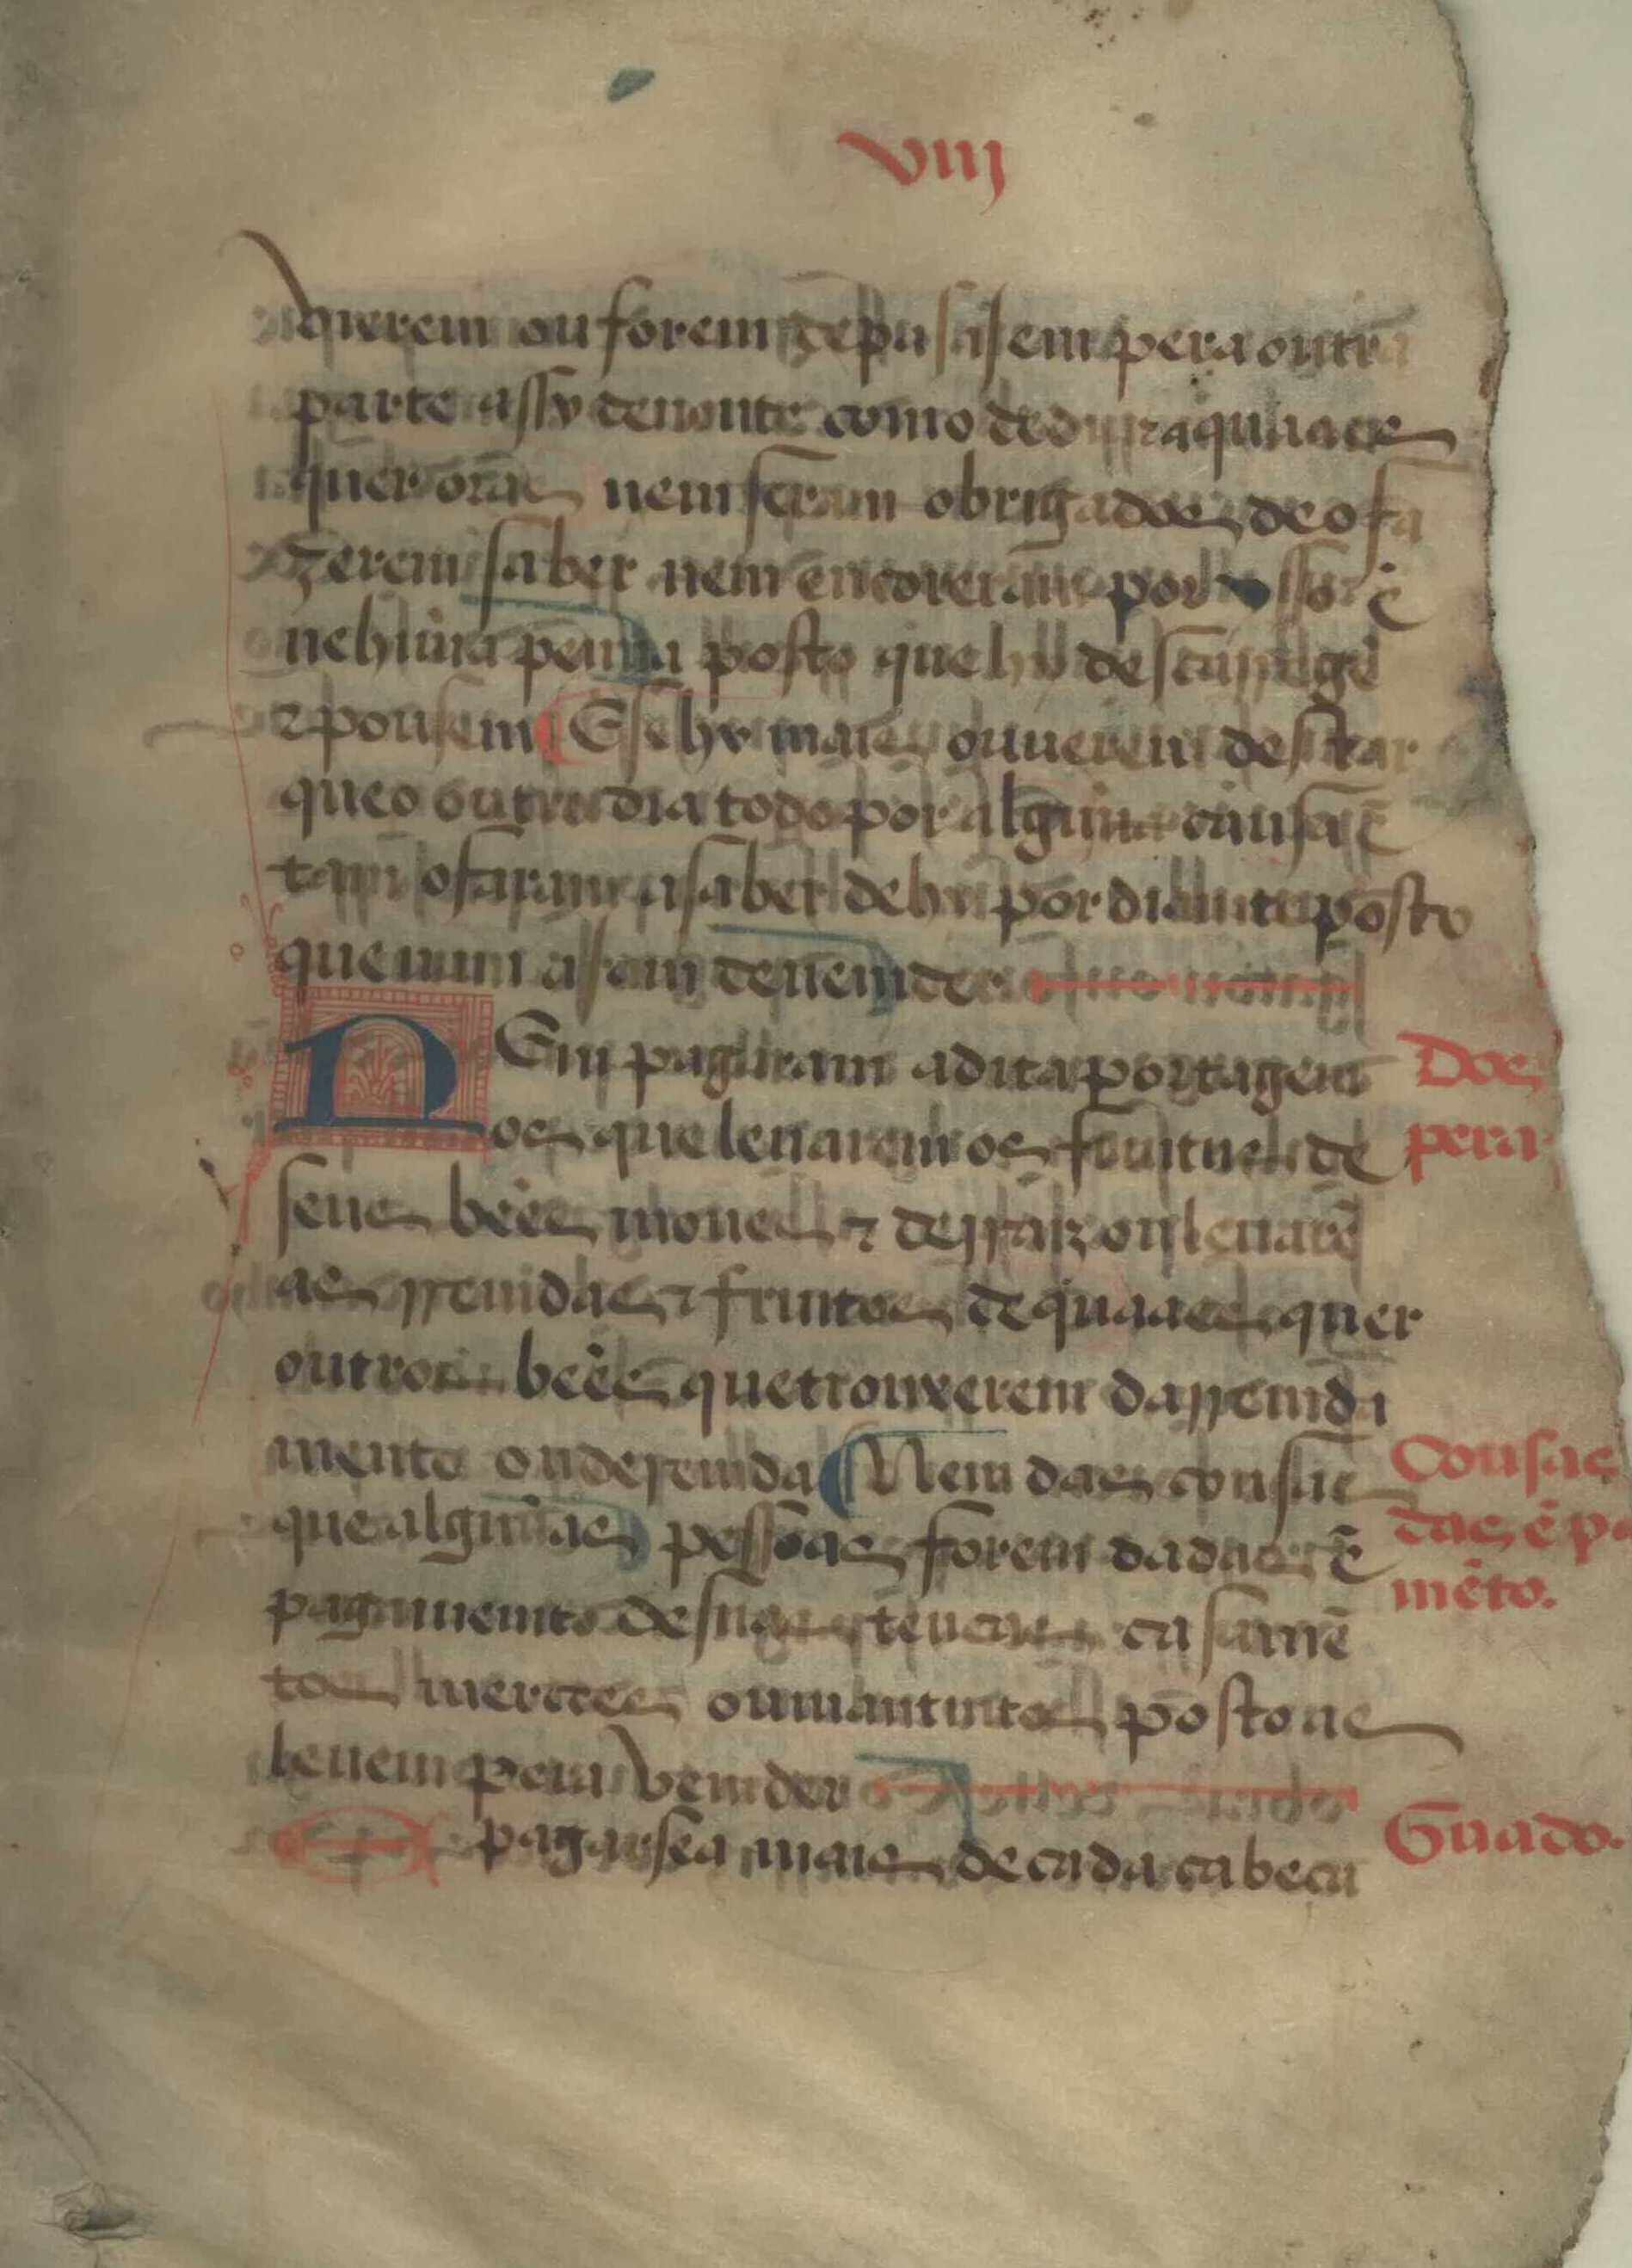 viij
vierem ou forem de pasajem pera outra
parte assy de noute como de dia a quaaes
quer oras nem seram obrigados de o fa
zerem saber nem encorreram por ysso ẽ
nehuũa penna posto que hy descarregẽ
⁊ pousem E se hy mais ouuerem destar
que o outro dia todo por alguũa causa ẽ
tam o faram a saber de hy por diante posto
que nam ajam de vemder
NEm pagaram a dita portagem
os que leuarem os fruitus de
seus beẽs moues ⁊ de rraiz ou leuarẽ
as rremdas ⁊ fruitos de quaaes quer
outros beẽs que trouxerem darremda
mento ou de remda Nem das cousas
que alguũas pessoas forem dadas ẽ
pagamemto de suas temças casamẽ
tos merçees ou mantimtos posto que as
leuem pera vemder
E pagarsea mais de cada cabeça
Dos
pera
Cousas
das ẽ pa
mẽto.
Guado.